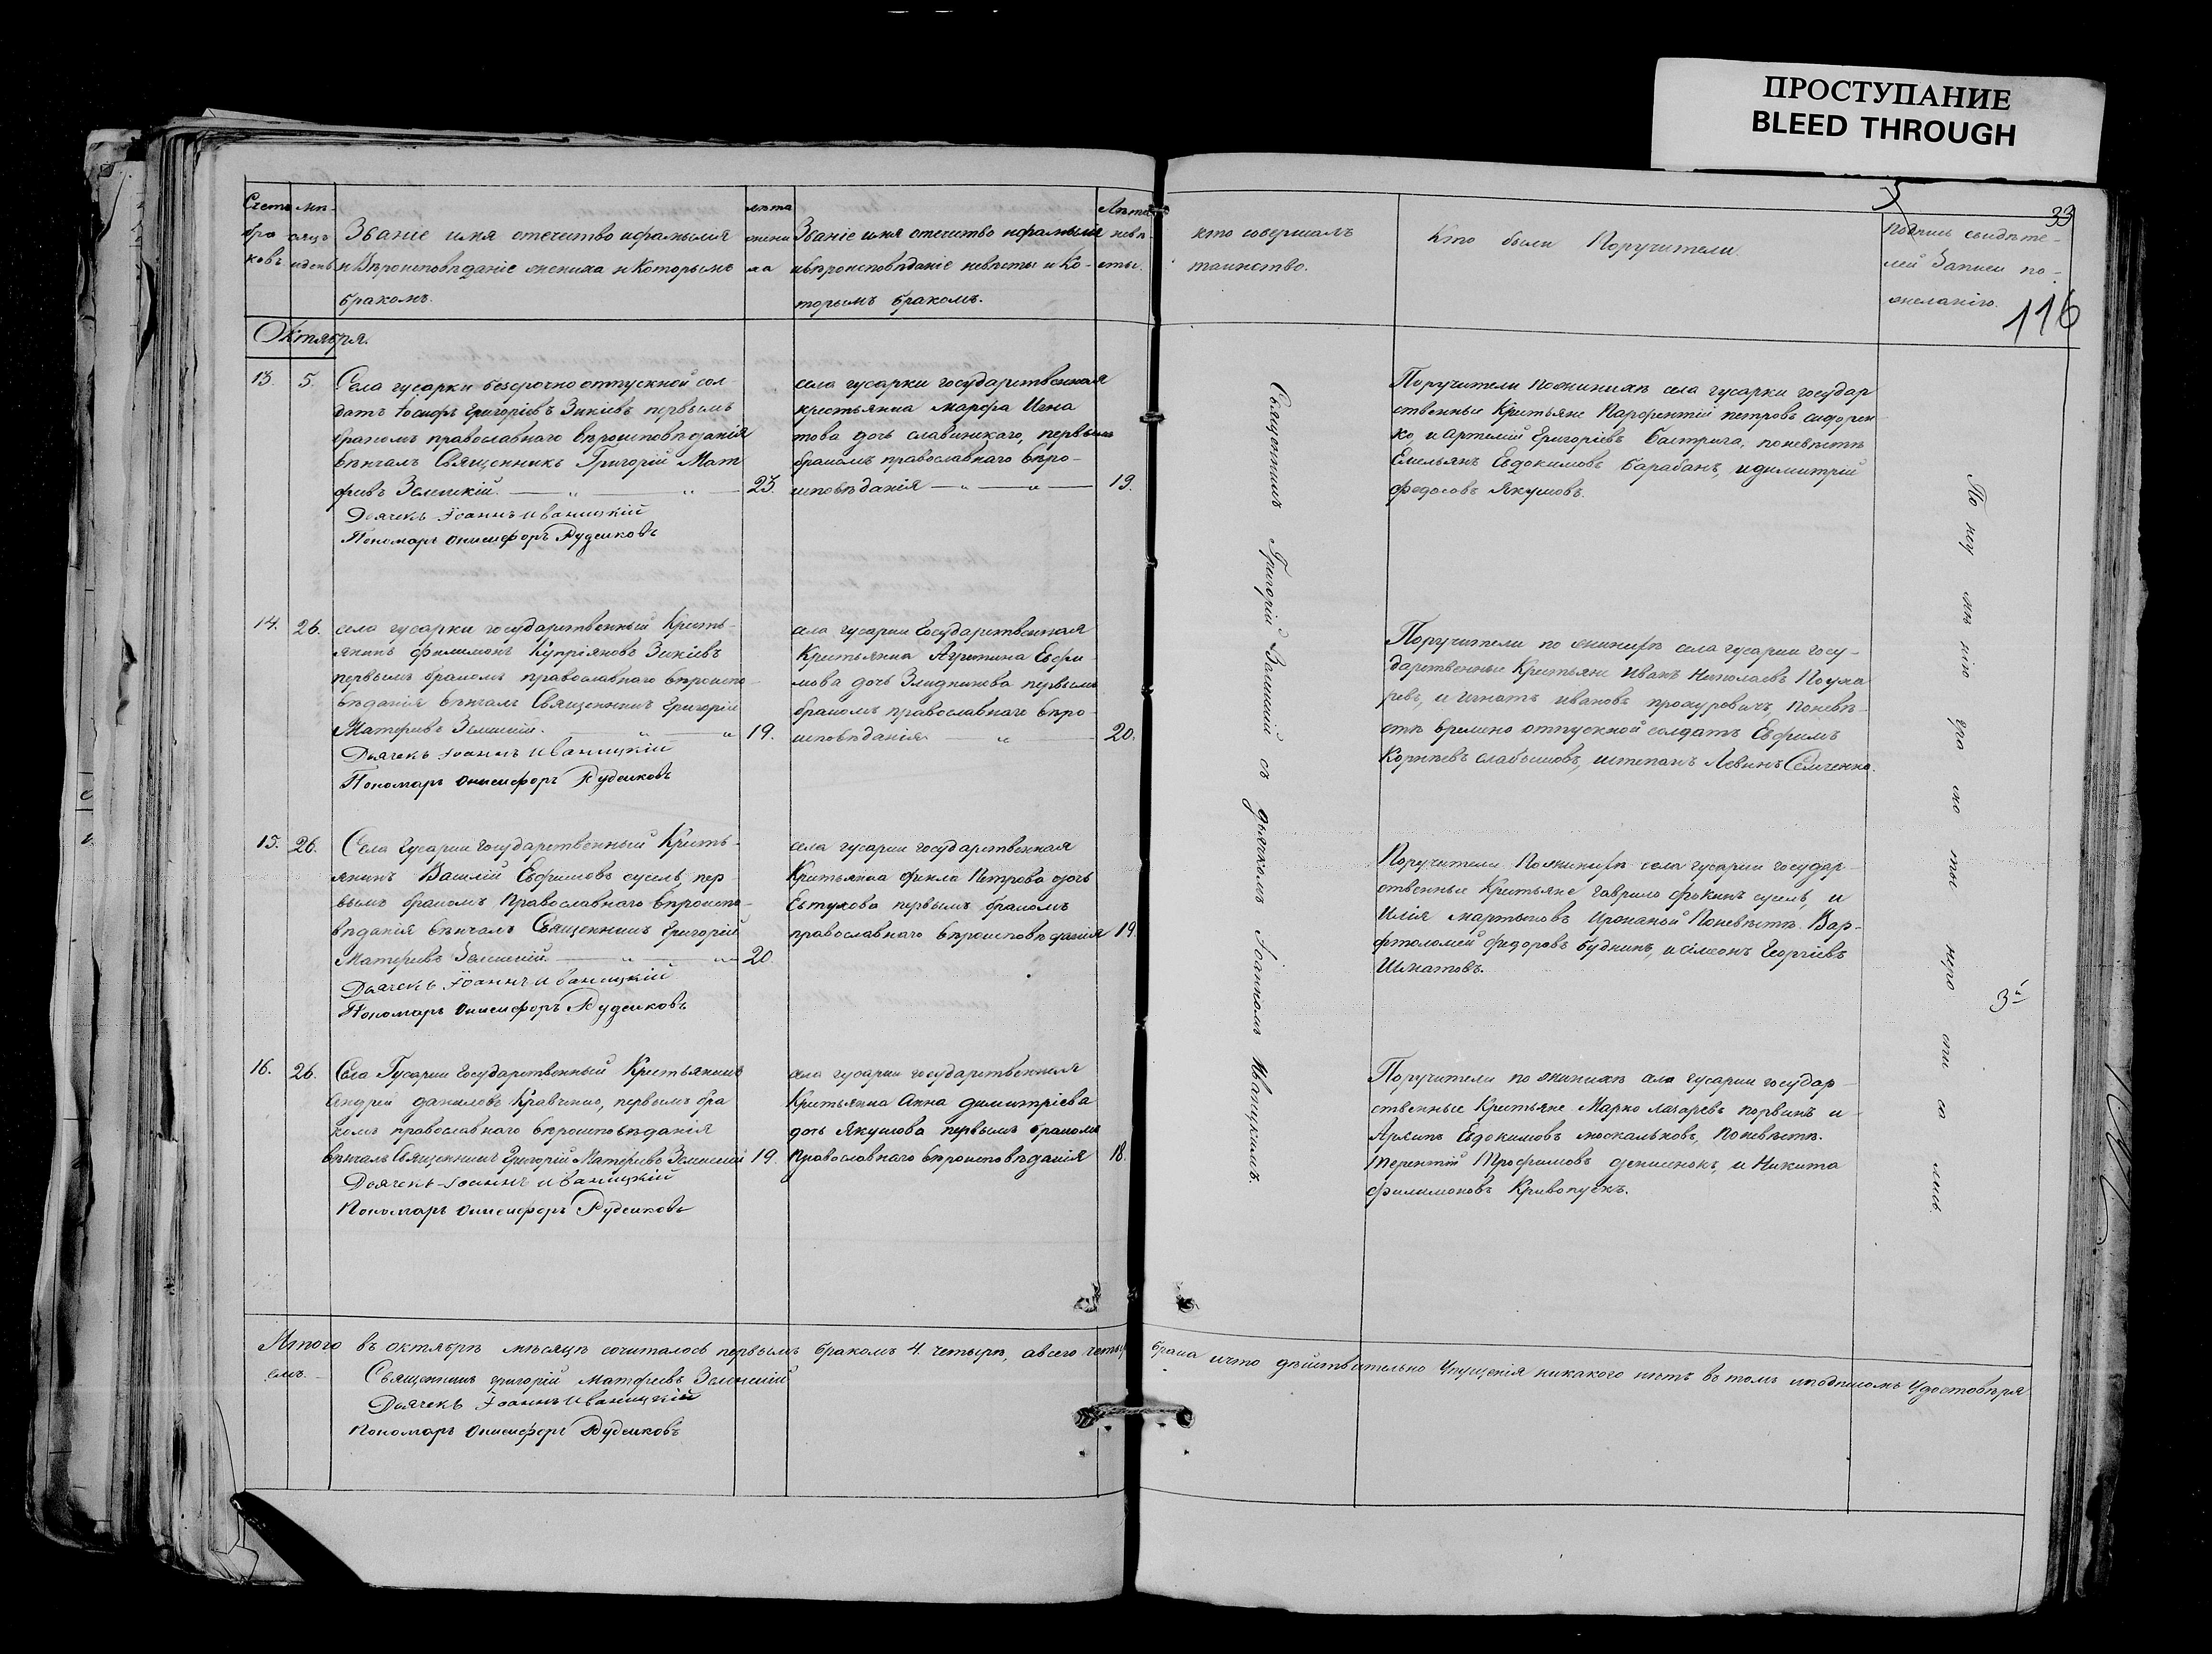 ПРОСТУПАНИЕ
BLEED THROUGH
33
116
Счетъ бра ковъ
мѣ- сяцъ и день
Званіе имя отечество и фамилія
и вѣроисповѣданіе жениха и Которымъ
бракомъ.
лѣта жени ха
Званіе имя отечество и фамилія
и вѣроисповѣданіе невѣсты и Ко-
торымъ бракомъ.
Лѣта невѣ- сты.
кто совершалъ
таинство.
Кто были Поручители.
Подпись свидѣте-
лей Записи по-
желанію.
Октября.
13. 5.
Села гусарки безсрочно отпускной сол-
датъ Іосифъ Григоріевъ Зикіевъ первымъ
бракомъ православнаго вѣроисповѣданія
вѣнчалъ Священникъ Григорій Мат
фѣевъ Земскій. 23.
Дьячекъ Іоаннъ Иваницкій
Пономарь Онисифоръ Рудешковъ
села гусарки государственная
крестьянка марфа Игна
това дочь славинскаго, первымъ
бракомъ православнаго вѣро-
исповѣданія 19.
Поручители по женихѣ села гусарки государ
ственные Крестьяне Парфентій петровъ сидорен
ко, и артемій Григоріевъ бастрига, по невѣстѣ
Емельянъ Евдокимовъ барабанъ, и димитрій
федосовъ Якушовъ.
14. 26.
села гусарки государственный Кресть-
янинъ филимонъ Купріяновъ Зикіевъ
первымъ бракомъ православнаго вѣроиспо-
вѣданія вѣнчалъ Священникъ Григорій
Матфѣевъ 19.
Дьячекъ Іоаннъ Иваницкій
Пономарь Онисифоръ Рудешковъ
села гусарки Государственная
Крестьянка Агрипина Евфи-
мова дочь Злидникова первымъ
бракомъ православнаго вѣро-
исповѣданія 20.
Поручители по женихѣ села гусарки госу-
дарственные Крестьяне Иванъ Николаевъ
и Игнатъ ивановъ прокуровичъ, По невѣ-
стѣ времено отпускной солдатъ Евфимъ
Корнѣевъ слабышовъ, и степанъ Левинъ Семченко.
15. 26.
Села Гусарки Государственный Кресть-
янинъ Василій Евфимовъ сусель, пер
вымъ бракомъ Православнаго вѣроиспо-
вѣданія вѣнчалъ Священникъ Григорій
Матфѣевъ 20.
Дьячекъ Іоаннъ Иваницкій
Пономарь Онисифоръ Рудешковъ
села гусарки государственная
Крестьянка фекла Петрова дочь
Евтухова первымъ бракомъ
православнаго вѣроисповѣданія 19.
Поручители По женихѣ села гусарки государ-
ственные Крестьяне гаврило фокинъ сусель, и
Илія мартыновъ По невѣстѣ Вар-
фоломей федоровъ будникъ, и симеонъ Георгіевъ
Шматовъ.
16. 26.
Села Гусарки Государственный Крестьянинъ
андрей даниловъ Кравченко, первымъ бра
комъ православнаго вѣроисповѣданія
вѣнчалъ Священникъ Григорій Матфѣевъ Земскій 19.
Дьячекъ Іоаннъ Иваницкій
Пономарь Онисифоръ Рудешковъ
села гусарки государственная
Крестьянка Анна димитріева
дочь Якушова первымъ бракомъ
Православнаго вѣроисповѣданія 18.
Поручители по женихѣ села гусарки государ-
ственные Крестьяне Марко лазаревъ и
Архипъ Евдокимовъ москальковъ, По невѣстѣ.
терентій Трофимовъ денисенокъ, и Никита
филимоновъ Кривопускъ.
Священникъ Григорій Земскій съ дьячкомъ Іоанномъ Иваницкимъ.
3й
Итого въ октябрѣ мѣсяцѣ сочиталось первымъ бракомъ 4. четыре, а всего четыре брака и что дѣйствительно упущенія никакого нѣтъ въ томъ и подписомъ Удостовѣря
емъ.
Священникъ Григорій Матфѣевъ Земскій
Дьячекъ Іоаннъ Иваницкій
Пономарь Онисифоръ Рудешковъ